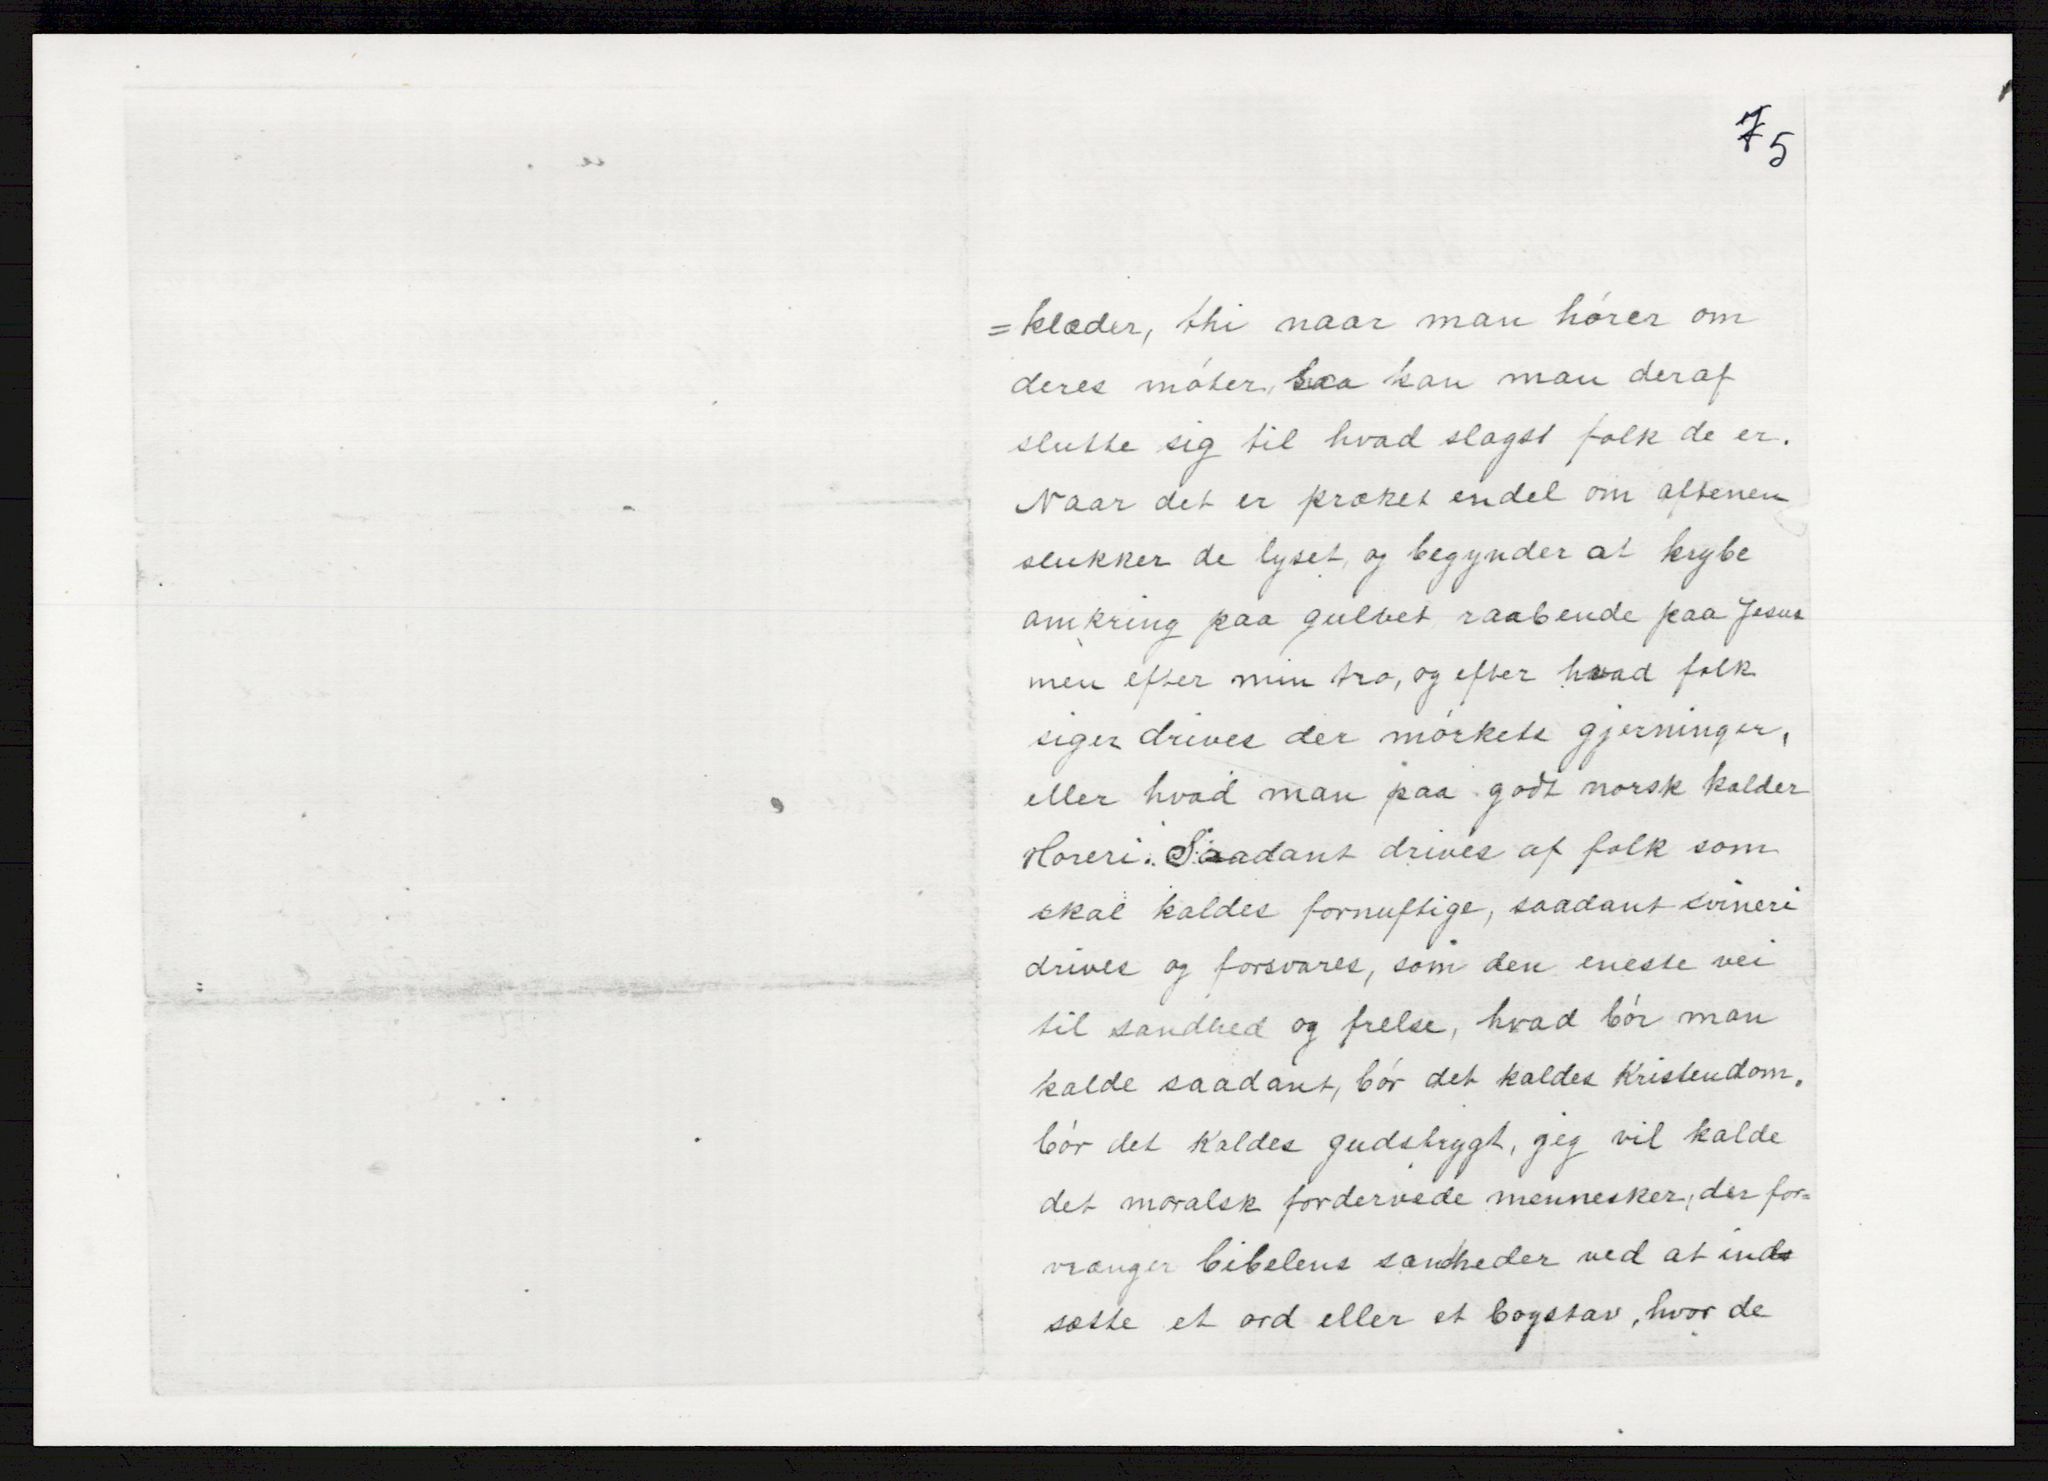 75
=klæder, thi naar man hόrer om
deres mόter, saa kan man deraf
slutte sig til hvad slagst folk de er.
Naar det er præket endel om aftenen
slukker de lyset, og begynder at krybe
omkring paa gulvet raabende paa Jesus
men efter min tro, og efter hvad folk
siger drives der mórkets gjerninger,
eller hvad man paa godt norsk kalder
Horeri. Saadant drives af folk som
skal kaldes fornuftige, saadant svineri
drives og forsvares, som den eneste vei
til sandhed og frelse, hvad bór man
kalde saadant, bór det kaldes Kristendom,
bór det kaldes gudstrygt, jeg vil kalde
det moralsk fordervede mennesker, der for=
vrænger bibelens sandheder ved at ind
sætte et ord eller et bogstav, hvor de